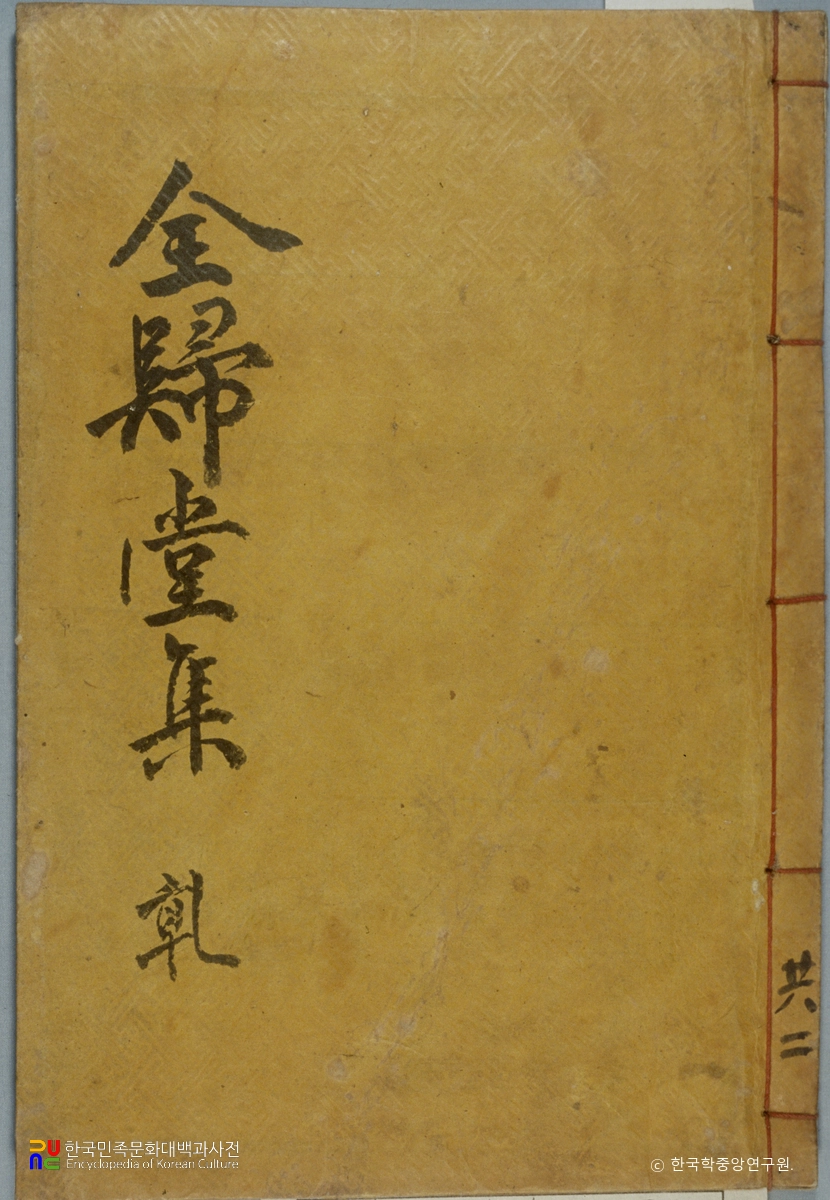 全歸堂集 乹
共二
한국민족문화대백과사전
Encyclopedia of Korean Culture
© 한국학중앙연구원.